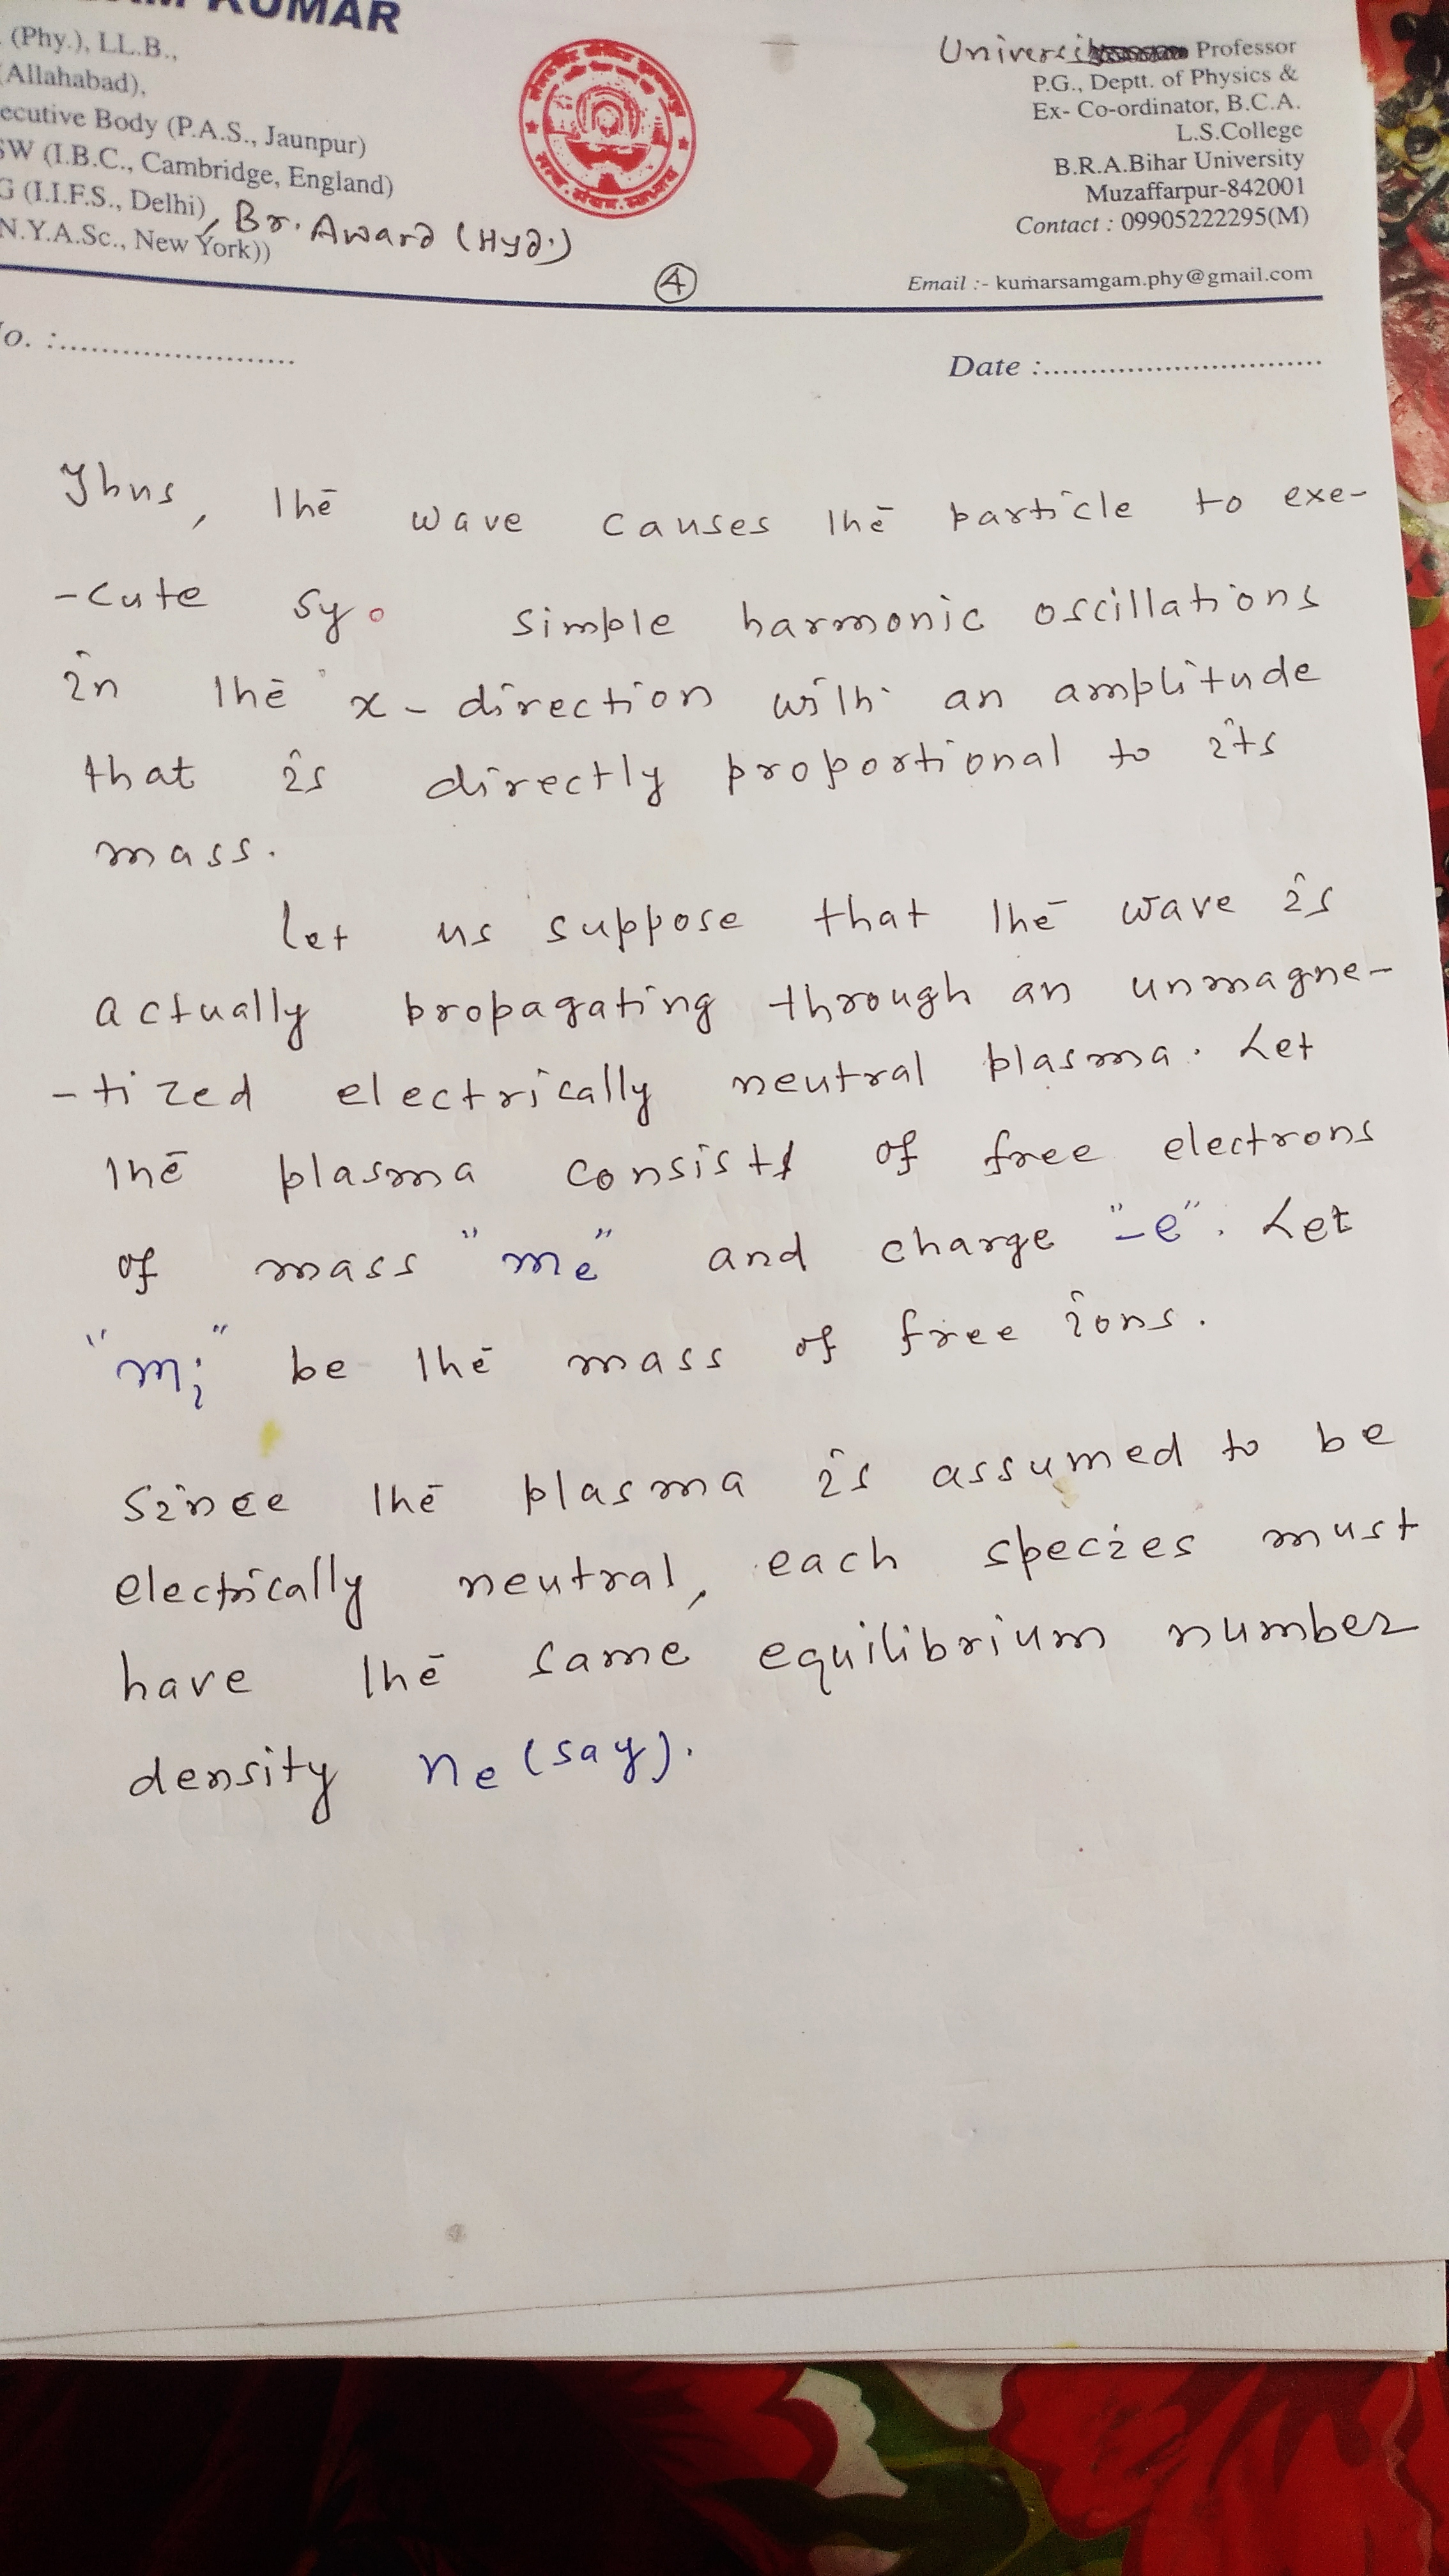 KUMAR
(Phy.), LL.B.,
(Allahabad),
ecutive Body (P.A.S., Jaunpur)
SW (I.B.C., Cambridge, England)
G (I.I.F.S., Delhi), Br. Award (Hyd.)
N.Y.A.Sc., New York))
Professor
P.G., Deptt. of Physics &
Ex- Co-ordinator, B.C.A.
L.S.College
B.R.A.Bihar University
Muzaffarpur-842001
Contact : 09905222295(M)
Email :- kumarsamgam.phy@gmail.com
4
o. :........................
Date :................................
Thus, the wave causes the particle to exe-
-cute sy. simple harmonic oscillations
in the x-direction with an amplitude
that is directly proportional to its
mass.
Let us suppose that the wave is
actually propagating through an unmagne-
-tized electrically neutral plasma. Let
the plasma consist of free electrons
of mass "me" and charge "-e". Let
"mi" be the mass of free ions.
Since the plasma is assumed to be
electrically neutral, each species must
have the same equilibrium number
density ne (say).